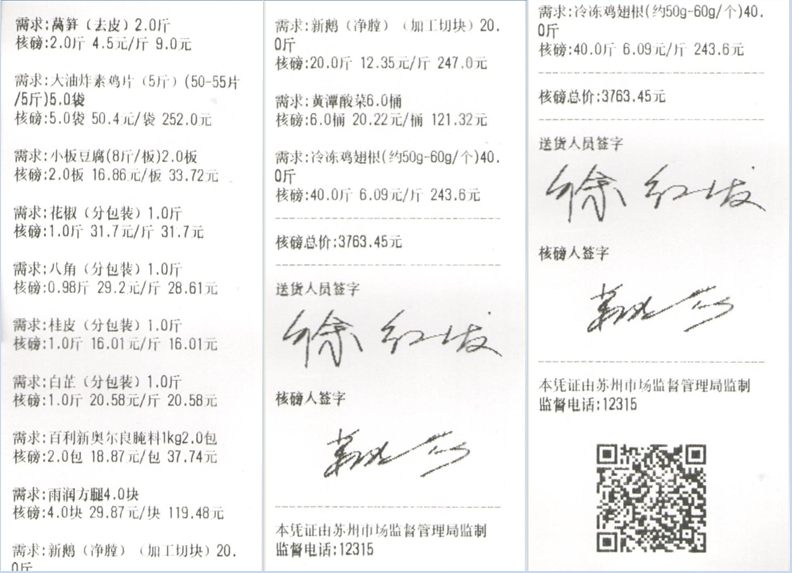 需求:萵笋（去皮）2.0斤
核磅:2.0斤 4.5元/斤 9.0元
需求:大油炸素鸡片（5斤）(50-55片
/5斤)5.0袋
核磅:5.0袋 50.4元/袋 252.0元
需求:小板豆腐(8斤/板)2.0板
核磅:2.0板 16.86元/板 33.72元
需求:花椒（分包装）1.0斤
核磅:1.0斤 31.7元/斤 31.7元
需求:八角（分包装）1.0斤
核磅:0.98斤 29.2元/斤 28.61元
需求:桂皮（分包装）1.0斤
核磅:1.0斤 16.01元/斤 16.01元
需求:白芷（分包装）1.0斤
核磅:1.0斤 20.58元/斤 20.58元
需求:百利新奥尔良腌料1kg2.0包
核磅:2.0包 18.87元/包 37.74元
需求:雨润方腿4.0块
核磅:4.0块 29.87元/块 119.48元
需求:新鹅（净膛）（加工切块）20.
0斤
需求:新鹅（净膛）（加工切块）20.
0斤
核磅:20.0斤 12.35元/斤 247.0元
需求:黄潭酸菜6.0桶
核磅:6.0桶 20.22元/桶 121.32元
需求:冷冻鸡翅根(约50g-60g/个)40.
0斤
核磅:40.0斤 6.09元/斤 243.6元
核磅总价:3763.45元
送货人员签字
徐红
核磅人签字
本凭证由苏州市场监督管理局监制
监督电话:12315
需求:冷冻鸡翅根(约50g-60g/个)40.
0斤
核磅:40.0斤 6.09元/斤 243.6元
核磅总价:3763.45元
送货人员签字
徐红
核磅人签字
本凭证由苏州市场监督管理局监制
监督电话:12315